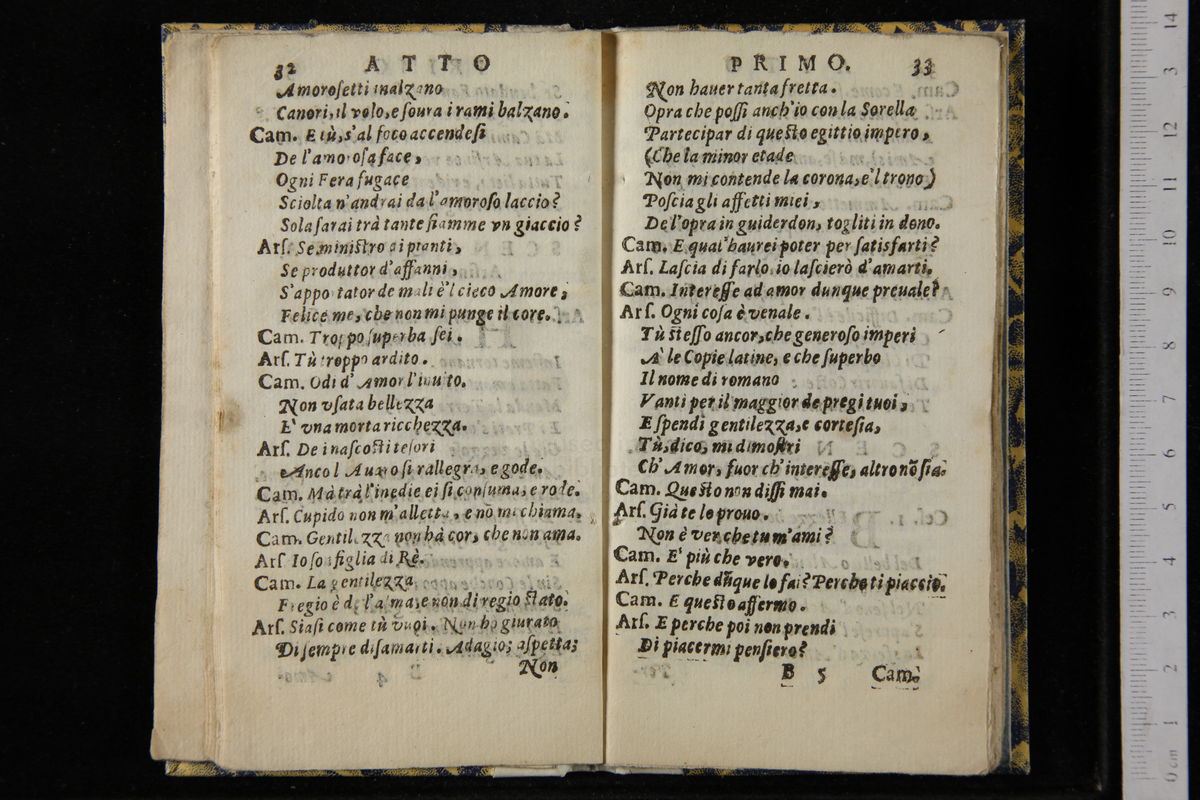 32 ATTO
Amorosetti inalzano
Canori, il volo, e soura i rami balzano.
Cam. E tù, s'al foco accendesi
De l'amorosa face,
Ogni Fera fugace
Sciolta n'andrai da l'amoroso laccio?
Sola sarai trà tante fiamme vn giaccio?
Ars. Se ministro di pianti,
Se produttor d'affanni,
S'apportator de mali è'l cieco Amore,
Felice me, che non mi punge il core.
Cam. Troppo superba sei.
Ars. Tù troppo ardito.
Cam. Odi d'Amor l'inuito.
Non vsata bellezza
E' vna morta ricchezza.
Ars. De i nascosti tesori
Anco l'Auaro si rallegra, e gode.
Cam. Mà trà l'inedie ei si consuma, e rode.
Ars. Cupido non m'alletta, e nō mi chiama.
Cam. Gentilezza non hà cor, che non ama.
Ars Io son figlia di Rè.
Cam. La gentilezza
Fregio è de l'alma, e non di regio stato.
Ars. Siasi come tù vuoi. Non hò giurato
Di sempre disamarti. Adagio; aspetta;
Non
PRIMO. 33
Non hauer tanta fretta.
Opra che possi anch'io con la Sorella
Partecipar di questo egittio impero,
(Che la minor etade
Non mi contende la corona, e'l trono)
Poscia gli affetti miei,
De l'opra in guiderdon, togliti in dono.
Cam. E qual' haurei poter per satisfarti?
Ars. Lascia di farlo, io lascierò d'amarti.
Cam. Interesse ad amor dunque preuale?
Ars. Ogni cosa è venale.
Tù stesso ancor, che generoso imperi
A' le Copie latine, e che superbo
Il nome di romano
Vanti per il maggior de pregi tuoi,
E spendi gentilezza, e cortesia,
Tù, dico, mi dimostri
Ch' Amor, fuor ch' interesse, altro nō sia.
Cam. Questo non dissi mai.
Ars. Già te lo prouo.
Non è ver, che tu m'ami?
Cam. E' più che vero.
Ars. Perche dūque lo fai? Perche ti piaccio.
Cam. E questo affermo.
Ars. E perche poi non prendi
Di piacermi pensiero?
B 5 Cam.